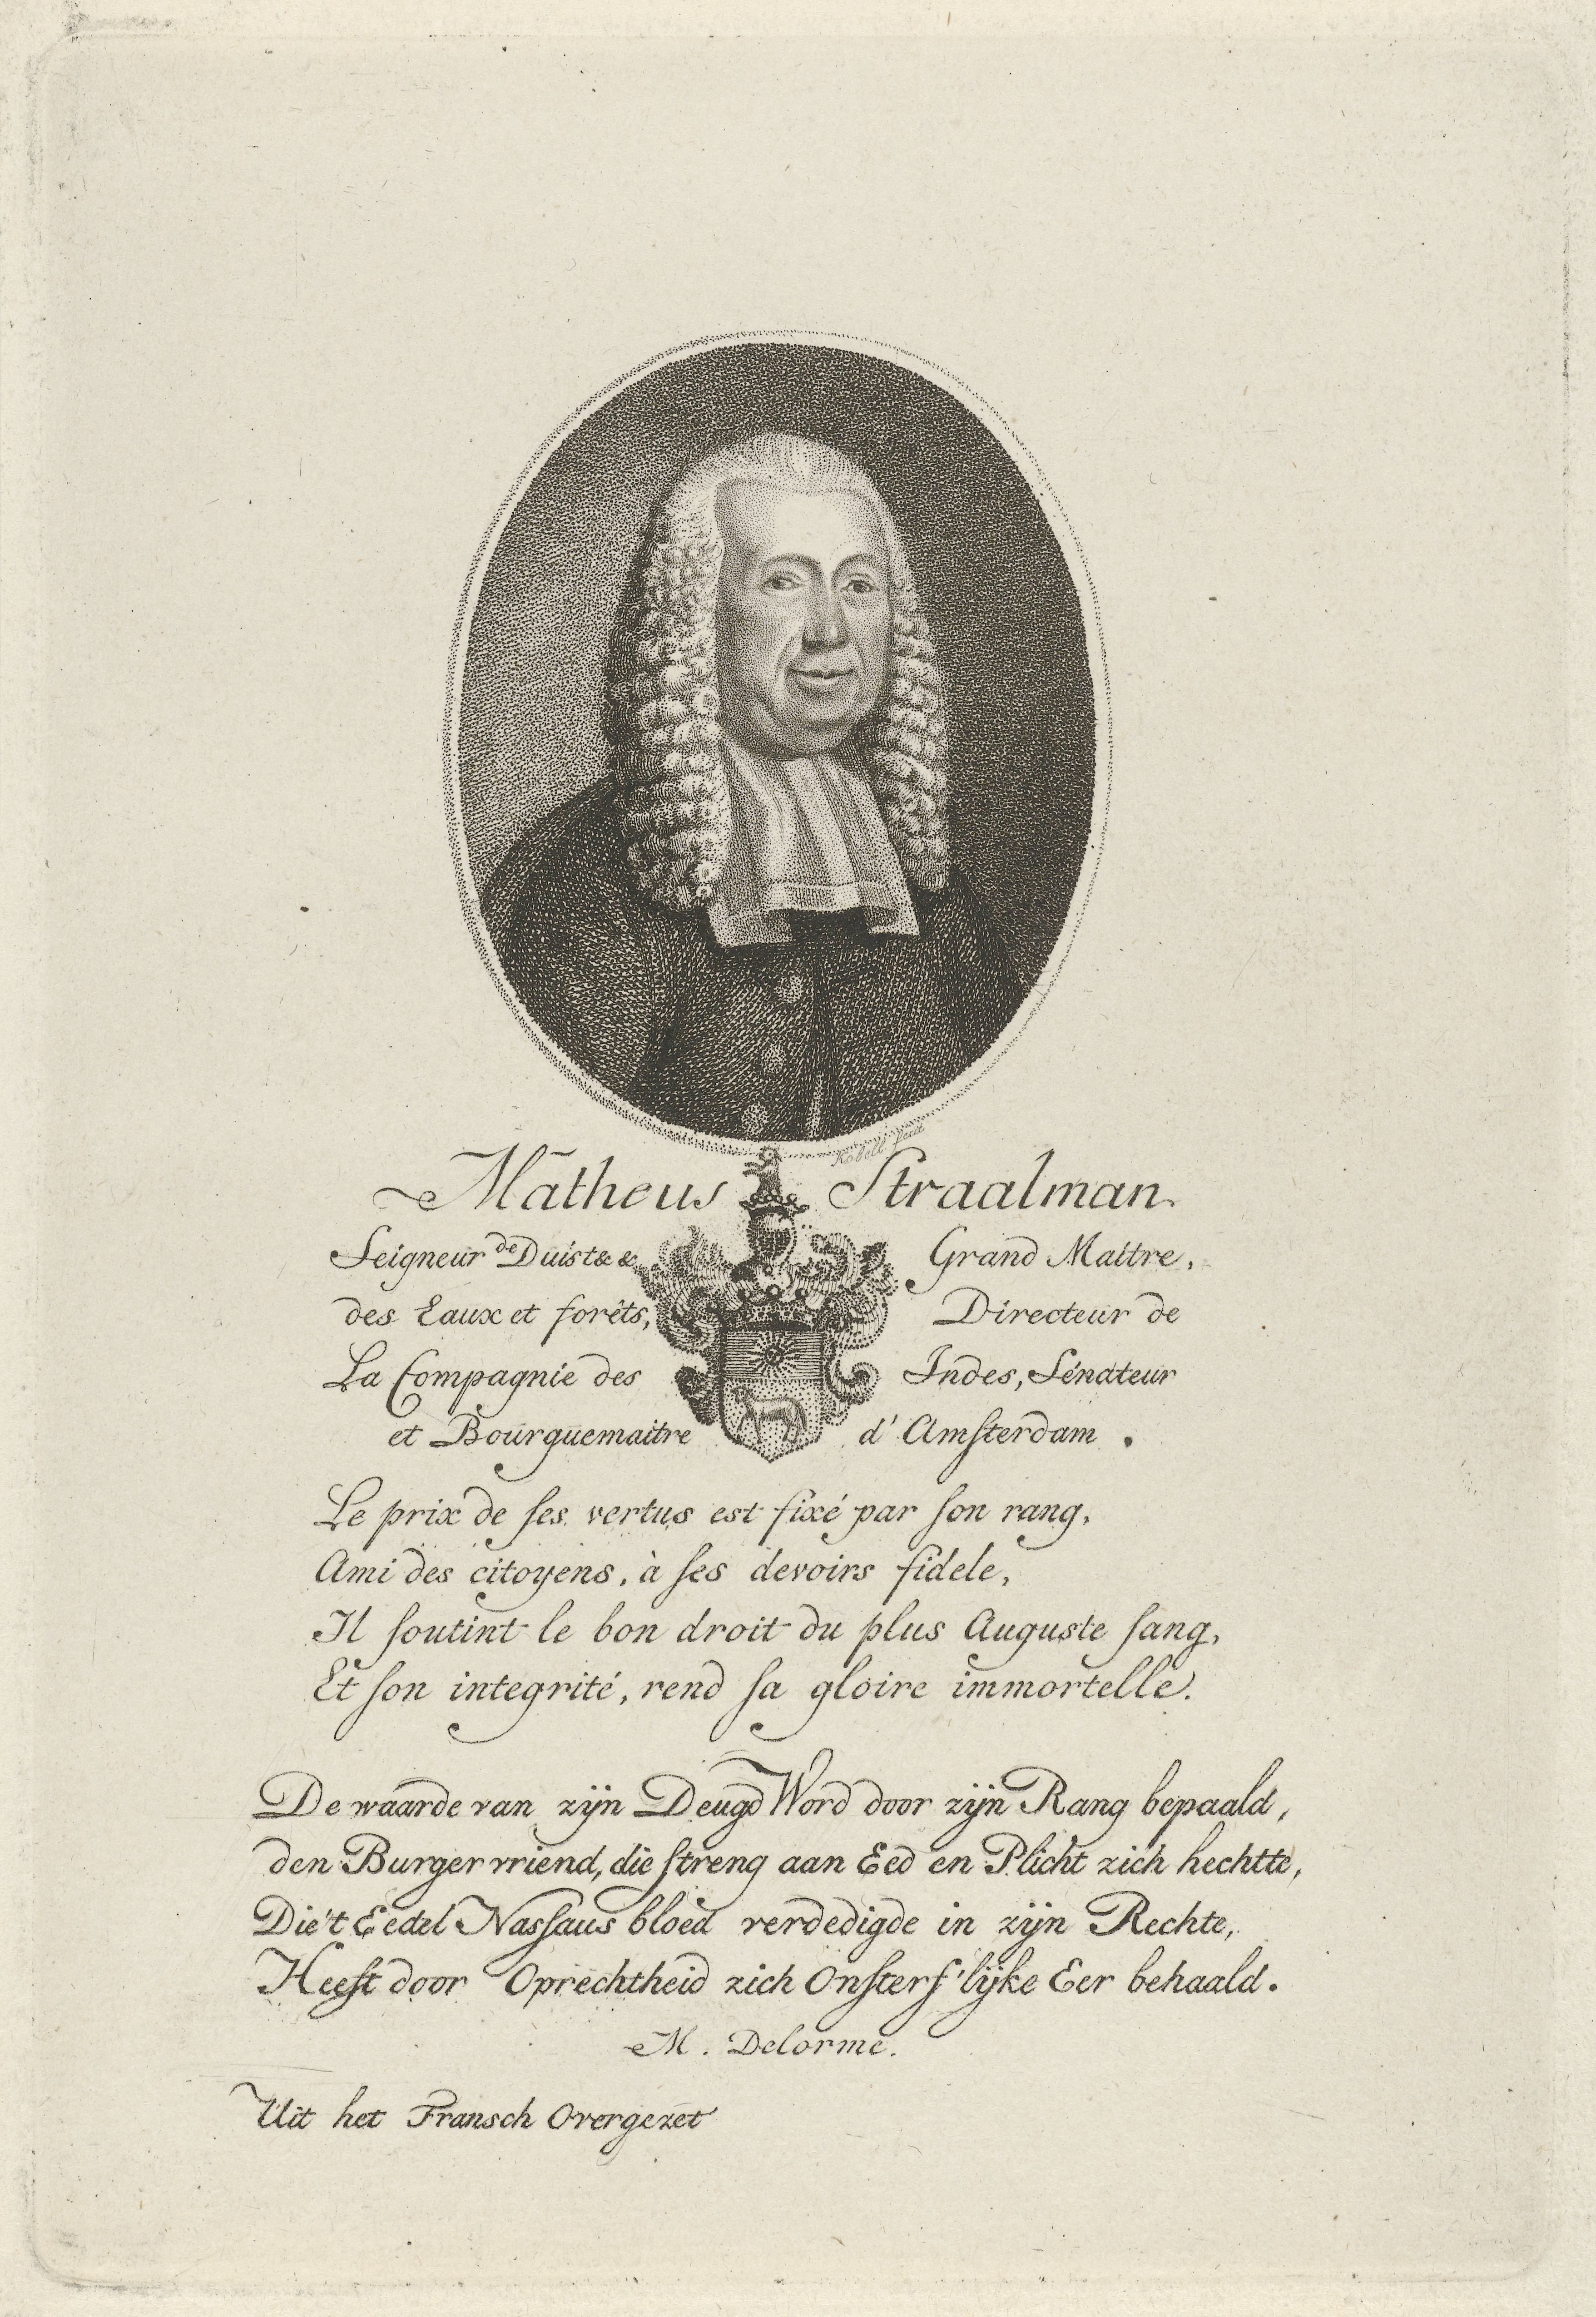 Kobell fecit
Matheus Straalman
Seigneur de Duist & & Grand Maitre,
des Eaux et forêts, Directeur de
La Compagnie des Indes, Sénateur
et Bourguemaitre d'Amsterdam.
Le prix de ses vertus est fixé par son rang,
Ami des citoyens, à ses devoirs fidele,
Il soutint le bon droit du plus Auguste sang,
Et son integrité, rend sa gloire immortelle.
De waarde van zijn Deugd Word door zijn Rang bepaald,
den Burger vriend, die streng aan Eed en Plicht zich hechtte,
Die't Eedel Nassaus bloed verdedigde in zijn Rechte,
Heeft door Oprechtheid zich Onsterf'lijke Eer behaald.
M. Delorme.
Uit het Fransch Overgezet